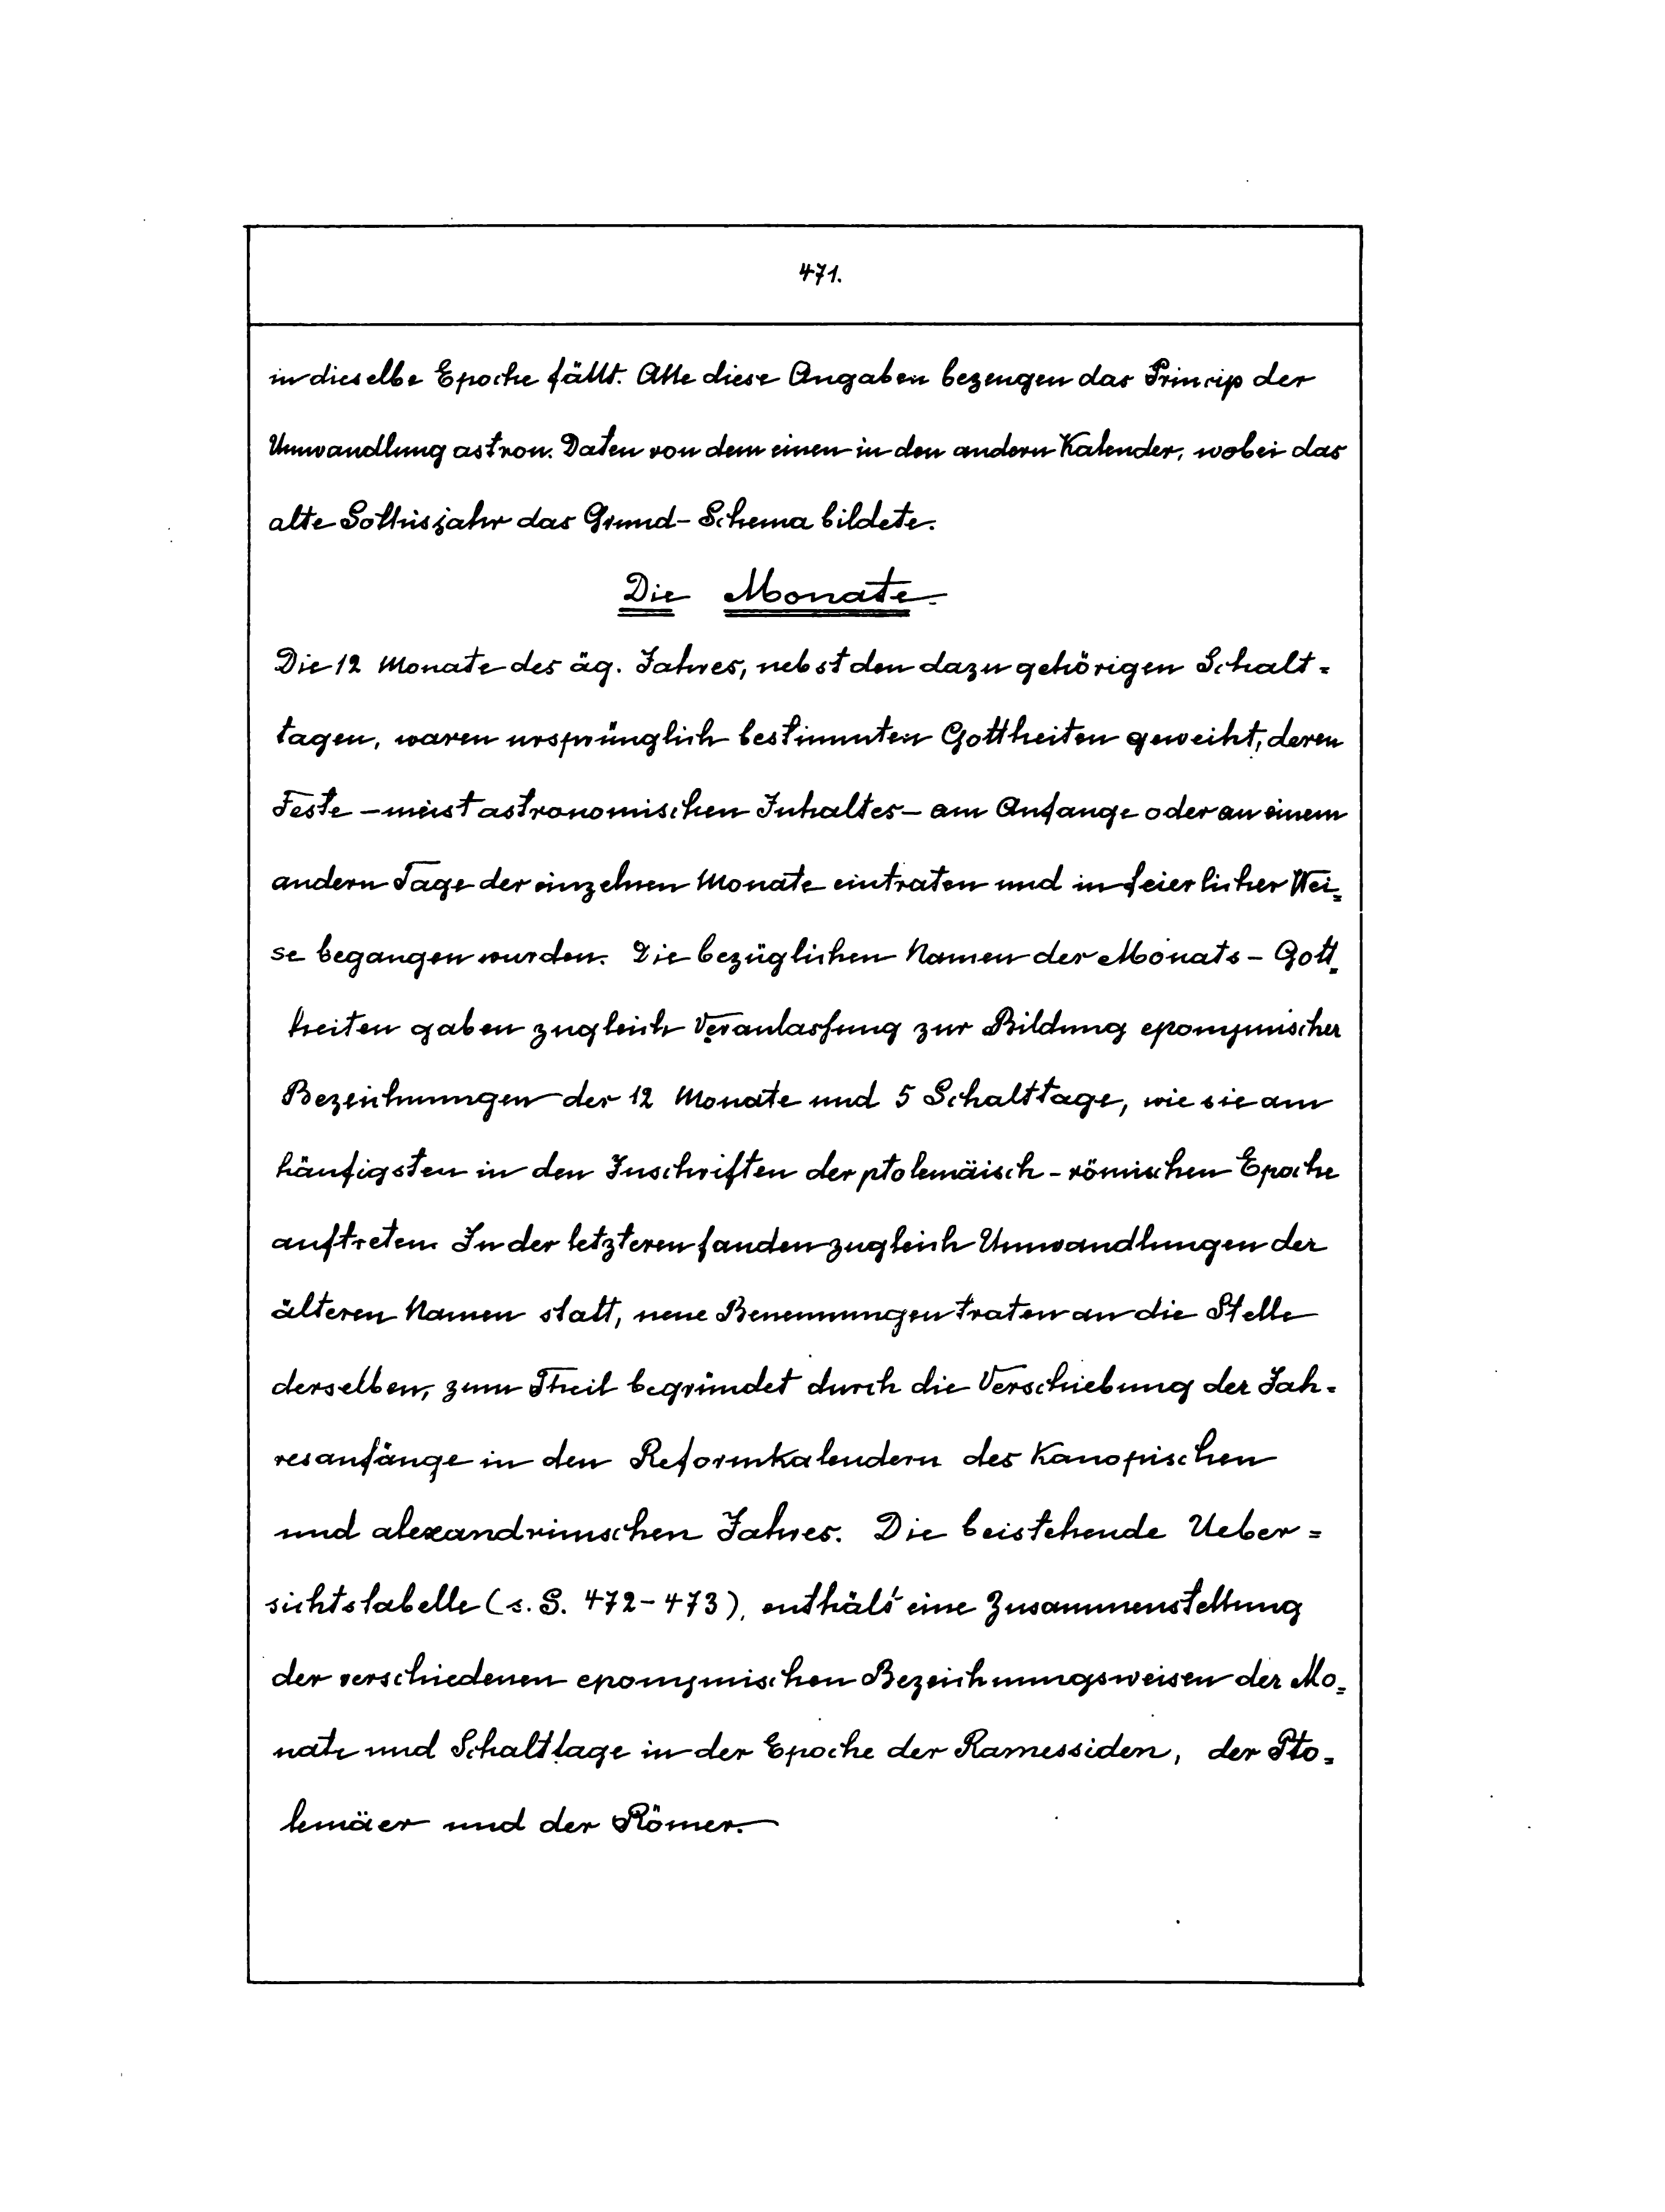 471.
in dieselbe Epoche fällt. Alle diese Angaben bezeugen das Princip der
Umwandlung astron. Daten von dem einen in den andern Kalender, wobei das
alte Sothisjahr das Grund-Schema bildete.
Die Monate.
Die 12 Monate des äg. Jahres, nebst den dazu gehörigen Schalt=
tagen, waren ursprünglich bestimmten Gottheiten geweiht, deren
Feste – meist astronomischen Inhaltes – am Anfange oder an einem
andern Tage der einzelnen Monate eintraten und in feierlicher Wei=
se begangen wurden. Die bezüglichen Namen der Monats-Gott=
heiten gaben zugleich Veranlassung zur Bildung eponymischer
Bezeichnungen der 12 Monate und 5 Schalttage, wie sie am
häufigsten in den Inschriften der ptolemäisch-römischen Epoche
auftreten. In der letzteren fanden zugleich Umwandlungen der
älteren Namen statt, neue Benennungen traten an die Stelle
derselben, zum Theil begründet durch die Verschiebung der Jah=
resanfänge in den Reformkalendern des Kanopischen
und alexandrinischen Jahres. Die beistehende Ueber=
sichtstabelle (s. S. 472-473), enthält eine Zusammenstellung
der verschiedenen eponymischen Bezeichnungsweisen der Mo=
nate und Schalttage in der Epoche der Ramessiden, der Pto=
lemäer und der Römer.